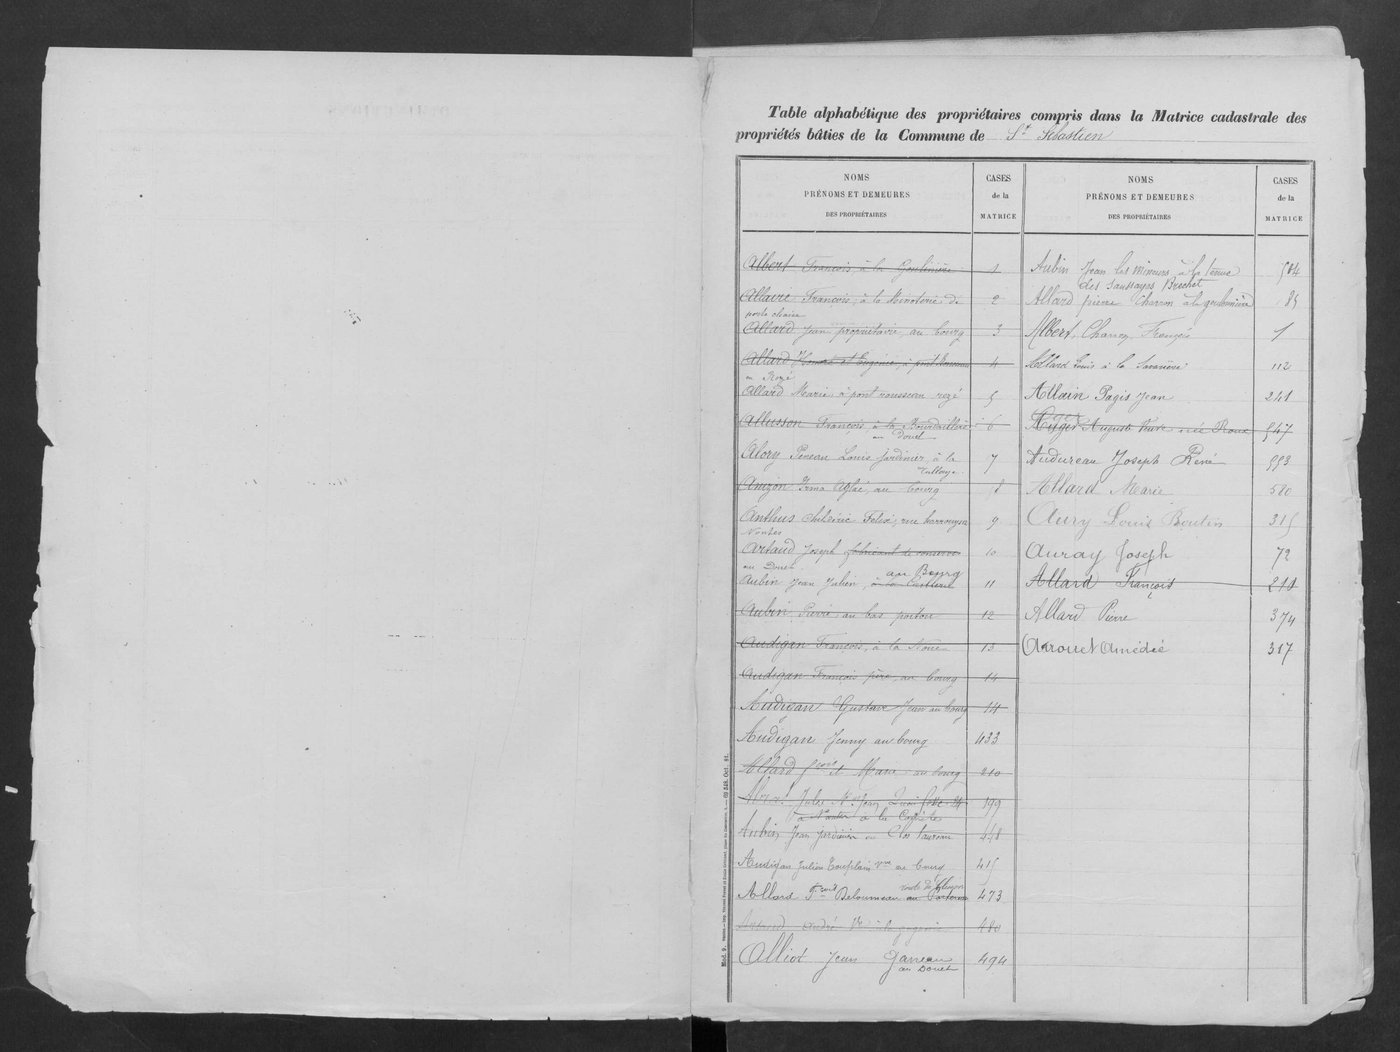 Table alphabétique des propriétaires compris dans la Matrice cadastrale des
propriétés bâties de la Commune de St Sébastien
NOMS
PRÉNOMS ET DEMEURES
DES PROPRIÉTAIRES
CASES
de la
MATRICE
Albert François à la Goulinière 1
Allaire François, à la Minoterie de 2
Allard Jean propriétaire, au bourg 3
Allard et Eugénie, à pont Rousseau 4
en Rezé
Allard Marie à pont rousseau rezé 5
Allusson François à la 6
au Douet
Alory Peneau Louis Jardinier à la 7
Anizon Irma Aglaé, au bourg 8
Anthus Childéric Félix, rue 9
Nantes
Artaud Joseph fabricant de conserves 10
au Douet
au Bourg
Aubin Jean Julien, à la 11
Aubin Pierre au bas poitou 12
Audigan François, à la Noue 13
Audigan François père, au bourg 14
Audigan Gustave Jean au bourg 14
Audigan Jenny au bourg 433
Allard fcois et Marie au bourg 210
Jules 199
à Nantes à la
Aubin Jean Jardinier au Clos 448
Audigan Julien Couplain vve au bourg 415
route de Clisson
Allard Fcois Beloumeau au 473
André Ve à la 480
Alliot Jean Garreau 494
au Douet
NOMS
PRÉNOMS ET DEMEURES
DES PROPRIÉTAIRES
CASES
de la
MATRICE
Aubin Jean les mineurs à la tenue 584
des Saussayes Brochet
Allard pierre Charron à la 85
Albert, Chancy François 1
Allard Louis à la Savarière 112
Allain Pagis Jean 241
Auguste Veuve née Roux 547
Audureau Joseph René 553
Allard Marie 580
Aury Louis Boutin 315
Auray Joseph 72
Allard François 210
Allard Pierre 374
Arrouet Amédée 317
Mod. 9.